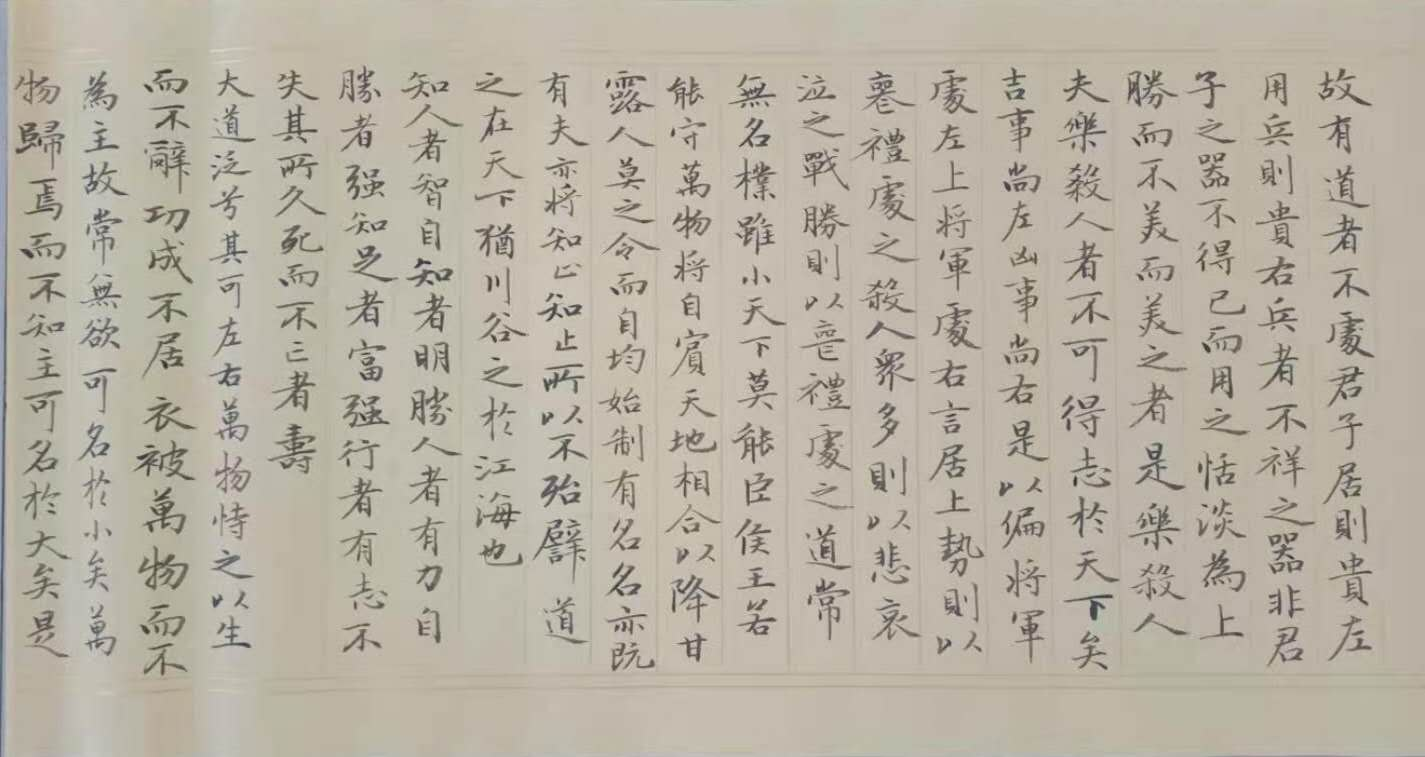 故有道者不處君子居則貴左
用兵則貴右兵者不祥之器非君
子之器不得已而用之恬淡為上
勝而不美而美之者是樂殺人
夫樂殺人者不可得志於天下矣
吉事尚左凶事尚右是以偏将軍
處左上将軍處右言居上勢則以
喪禮處之殺人衆多則以悲哀
泣之戰勝則以喪禮處之道常
無名樸雖小天下莫能臣侯王若
能守萬物将自賓天地相合以降甘
露人莫之令而自均始制有名名亦既
有夫亦将知止知止所以不殆譬道
之在天下猶川谷之於江海也
知人者智自知者明勝人者有力自
勝者强知足者富强行者有志不
失其所久死而不亡者壽
大道泛兮其可左右萬物恃之以生
而不辭功成不居衣被萬物而不
為主故常無欲可名於小矣萬
物歸焉而不知主可名於大矣是